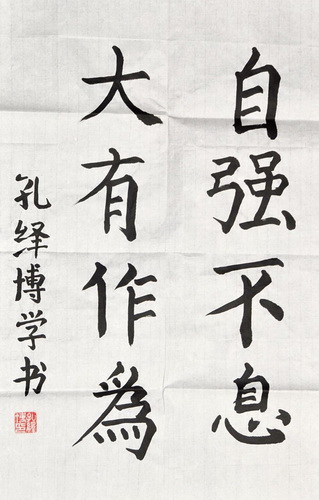 自强不息
大有作為
孔绎博学书